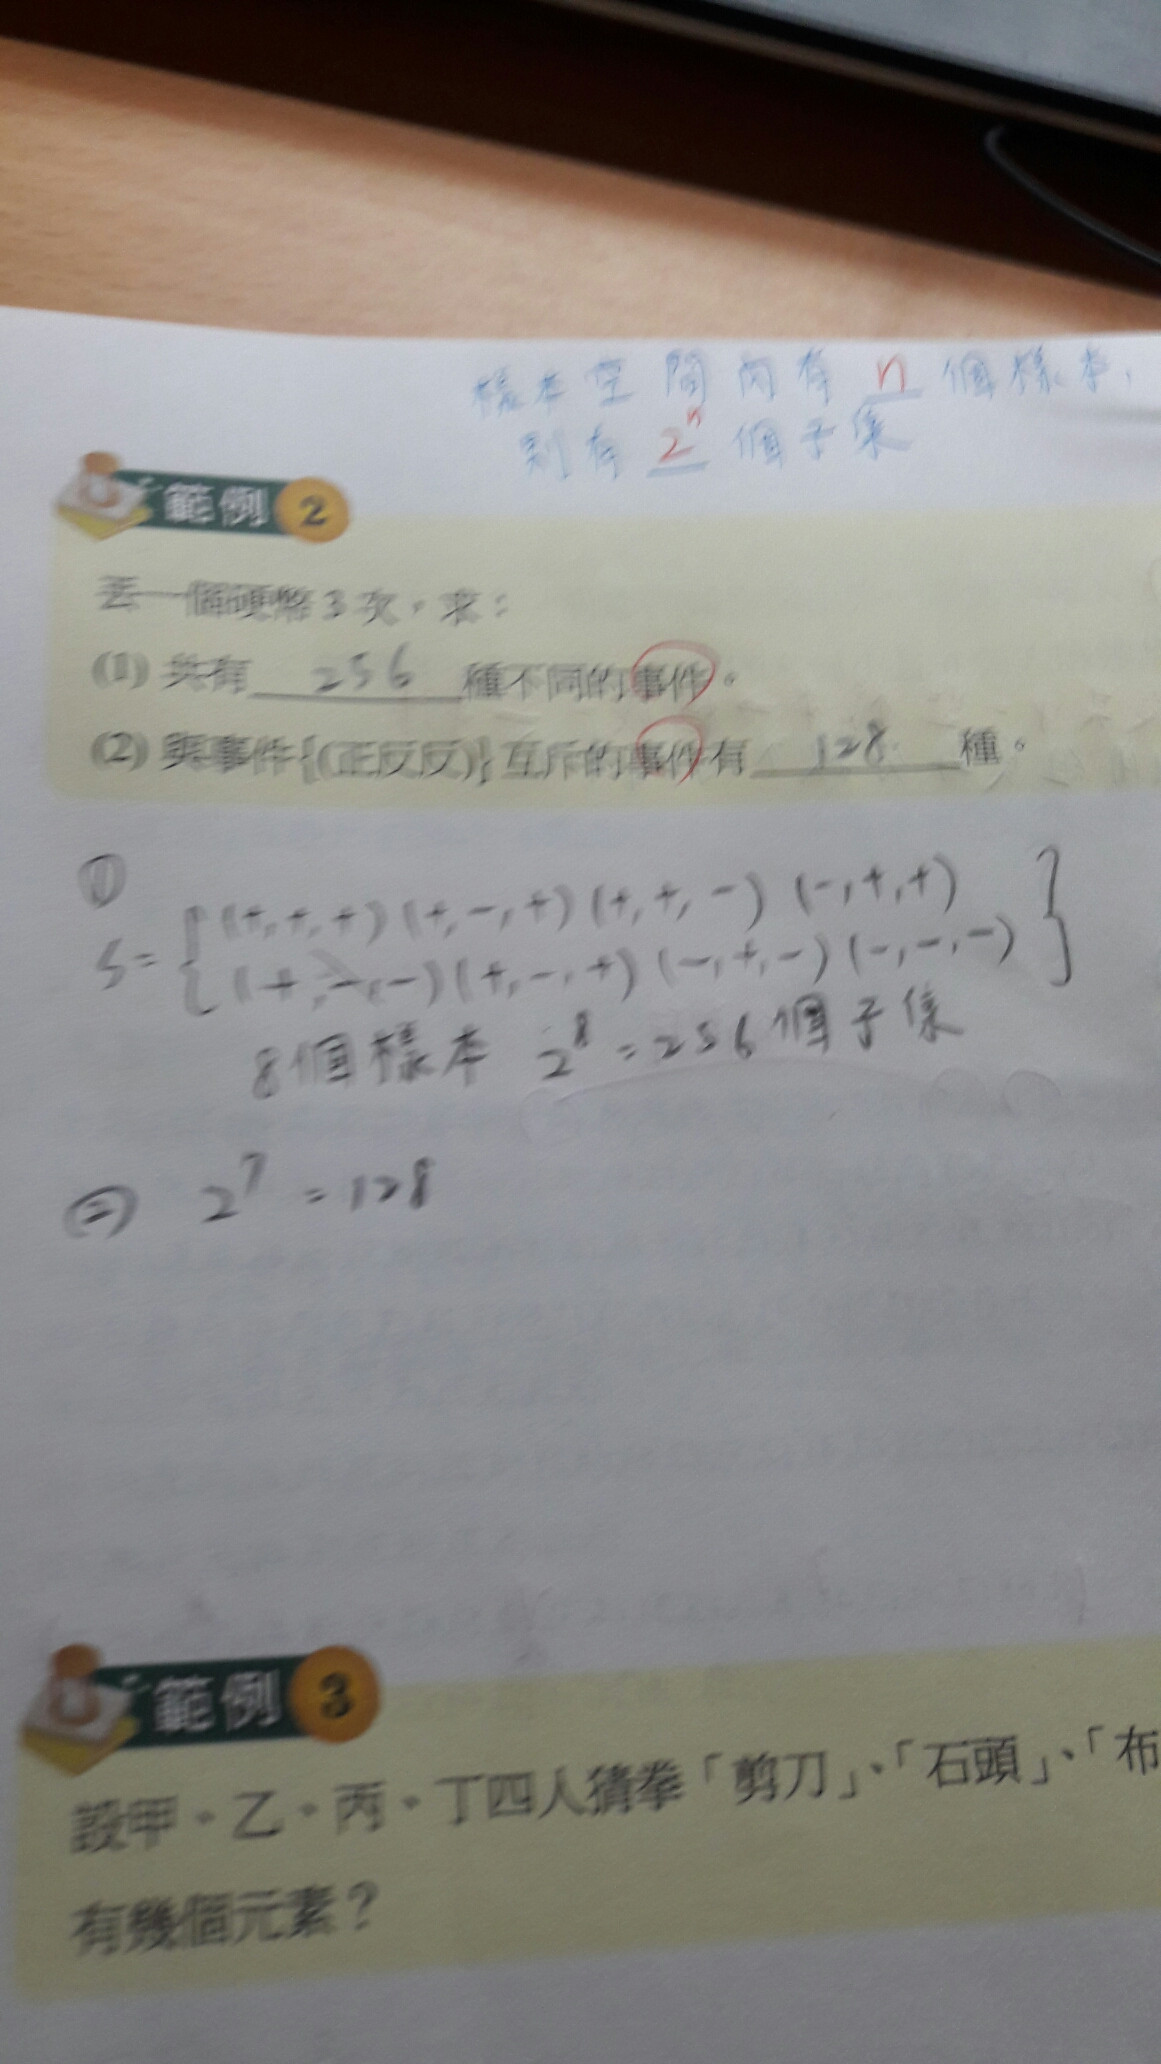 樣本空間內有 n 個樣本,
則有 2ⁿ 個子集
範例 2
丟一個硬幣3次,求:
(1) 共有 256 種不同的事件。
(2) 與事件{(正反反)}互斥的事件有 128 種。
①
S={(+,+,+)(+,-,+)(+,+,-)(-,+,+)
(+,-,-)(+,-,+)(-,+,-)(-,-,-)}
8個樣本 2⁸=256個子集
㊁ 2⁷=128
範例 3
設甲、乙、丙、丁四人猜拳「剪刀」、「石頭」、「布
有幾個元素?